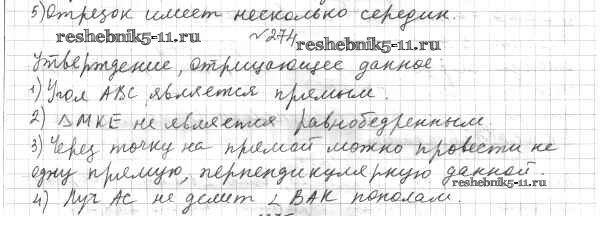 5) Отрезок имеет несколько середин.
reshebnik5-11.ru
№274
reshebnik5-11.ru
Утверждение, отрицающее данное:
1) Угол ABC является прямым.
2) ΔMKE не является равнобедренным.
3) Через точку на прямой можно провести не
одну прямую, перпендикулярную данной.
reshebnik5-11.ru
4) Луч AC не делит ∠ BAK пополам.